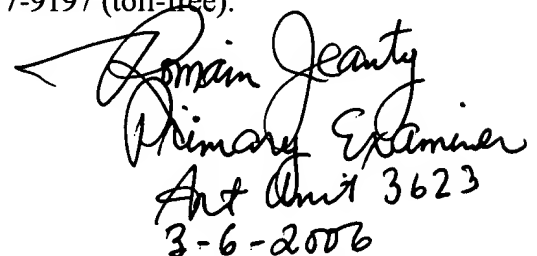 7-9197 (toll-free).
Romain Jeanty
Primary Examiner
Art Unit 3623
3-6-2006